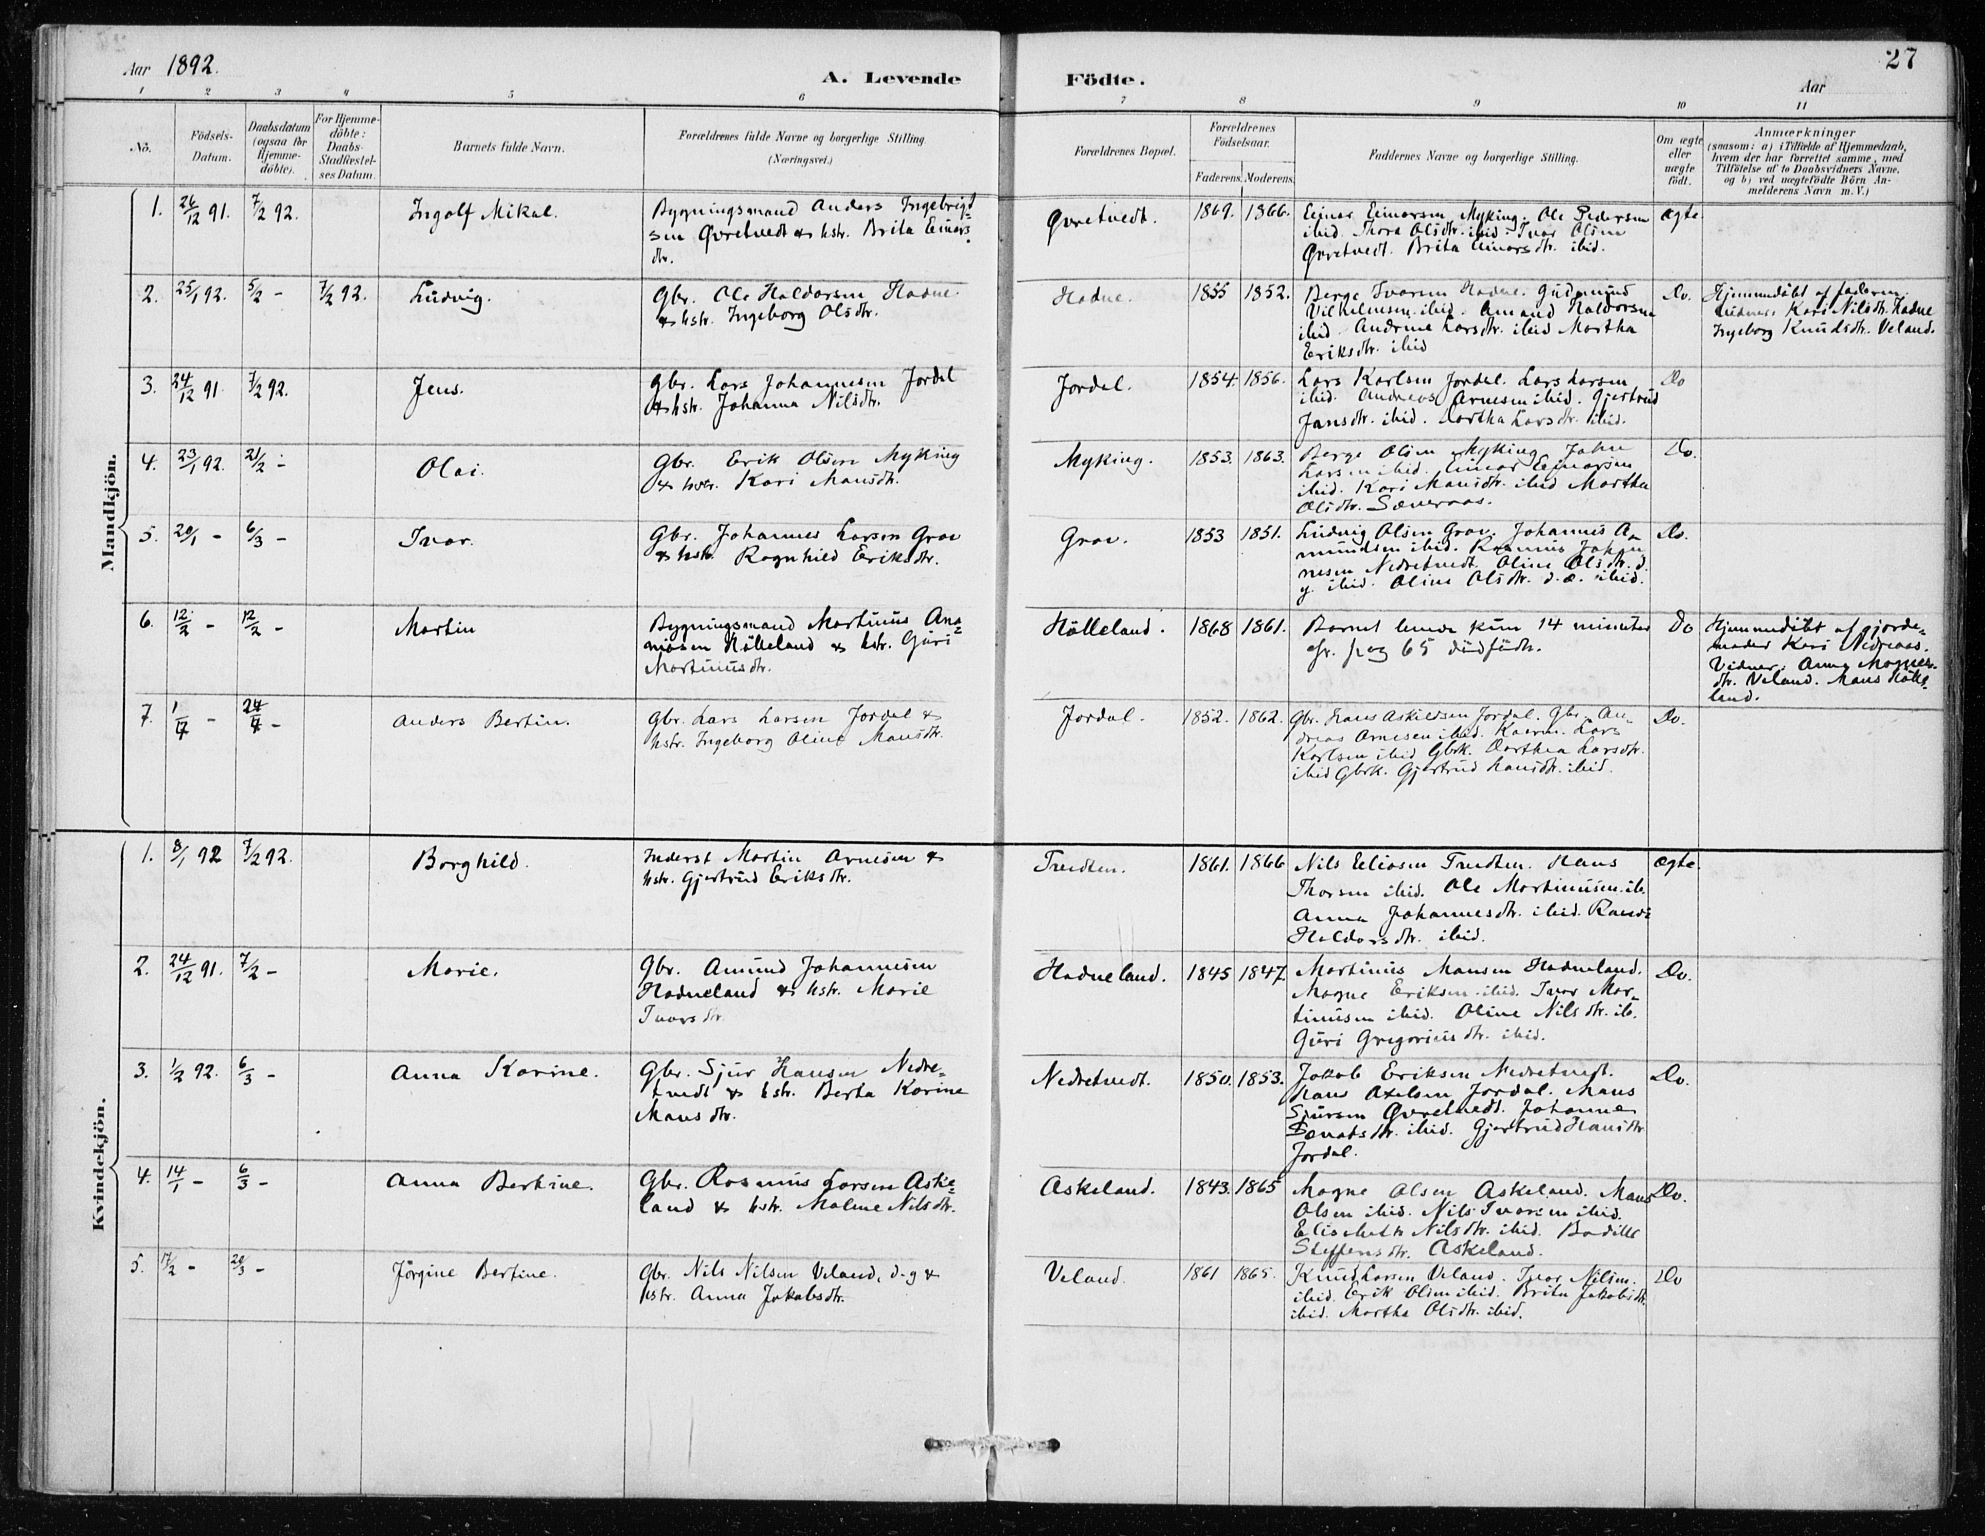 Aar 1892.
A. Levende Födte.
Aar
27
1 2 3 4 5 6 7 8 9 10 11
No.
Födsels-
Datum.
Daabsdatum
(ogsaa for
Hjemme-
döbte).
For Hjemme-
döbte:
Daabs-
Stadfæstel-
ses Datum.
Barnets fulde Navn.
Forældrenes fulde Navne og borgerlige Stilling
(Næringsvei.)
Forældrenes Bopæl.
Forældrenes
Födselsaar.
Faderens. Moderens.
Faddernes Navne og borgerlige Stilling.
Om ægte
eller
uægte
födt.
Anmærkninger
(saasom: a) i Tilfælde af Hjemmedaab,
hvem der har forrettet samme, med
Tilföielse af to Daabsvidners Navne.
og b) ved uægtefödte Börn An-
melderens Navn m. V.)
Mandkjön.
1. 26/12 91. 7/2 92. Ingolf Mikal.
Bygningsmand Anders Ingebrigt-
sen Øvretvedt & hstr. Brita Einars-
dtr.
Øvretvedt. 1869. 1866.
Einar Einarsen Myking. Ole Pedersen
ibid. Thora Olsdtr. ibid. Ivar Olsen
Øvretvedt. Brita Einarsdtr. ibid.
ægte
2. 25/1 92. 5/2 - 7/2 92. Ludvig.
Gbr. Ole Haldorsen Hadne.
& hstr. Ingeborg Olsdtr.
Hadne. 1855 1852.
Berge Ivarsen Hadne. Gudmund
Vilhelmsen ibid. Amund Haldorsen
ibid. Andrine Larsdtr. ibid Martha
Eriksdtr. ibid
Do.
Hjemmedöbt af faderen.
Vidner: Kari Nilsdtr. Hadne
Ingeborg Knudsdtr. Veland.
3. 24/12 91. 7/2 92. Jens.
Gbr. Lars Johannesen Jordal
& hstr. Johanna Nilsdtr.
Jordal. 1854. 1856.
Lars Karlsen Jordal. Lars Larsen
ibid. Andreas Arnesen ibid. Gjertrud
Jansdtr. ibid. Dorthea Larsdtr. ibid.
Do
4. 23/1 92. 21/2 - Olai.
Gbr. Erik Olsen Myking
& hstr. Kari Mansdtr.
Myking. 1853. 1863.
Berge Olsen Myking John
Larsen ibid. Einar Einarsen
ibid. Kari Mansdtr. ibid Martha
Olsdtr. Sæveraas.
Do.
5. 20/1 - 6/3 - Ivar.
Gbr. Johannes Larsen Grov
& hstr. Ragnhild Eriksdtr.
Grov. 1853 1851.
Ludvig Olsen Grov. Johannes A-
mundsen ibid. Rasmus Johan-
nesen Nedretvedt Oline Olsdtr. d.
y. ibid. Oline Olsdtr. d. æ. ibid.
Do.
6. 12/2 - 12/2 - Martin
Bygningsmand Martinus Ana-
niasen Hölleland & hstr. Guri
Martinusdtr.
Hölleland. 1868 1861.
Barnet levede kun 14 minuter
cfr. pag 65 dödfödte.
Do
Hjemmedöbt af gjorde-
moder Kari Nedreaas.
Vidner: Anna Magnes-
dtr. Veland. Mans Hölle-
land.
7. 1/4 - 24/4 - Anders Bertin.
Gbr. Lars Larsen Jordal &
hstr. Ingeborg Oline Mansdtr.
Jordal. 1852. 1862.
Gbr. Hans Askildsen Jordal. Gbr. An-
dreas Arnesen ibid. Lars
Karlsen ibid Gbrk. Dorthea Larsdtr.
ibid Gbrk. Gjertrud Hansdtr. ibid.
Do.
Kvindekjön.
1. 8/1 92 7/2 92. Borghild.
Inderst Martin Arnesen &
hstr. Gjertrud Eriksdtr.
Tredten. 1861. 1866
Nils Eliasen Tredten. Hans
Thorsen ibid. Ole Martinusen ib.
Anna Johannesdtr. ibid.
Haldorsdtr. ibid.
ægte.
2. 24/12 91. 7/2 - Marie.
Gbr. Amund Johannesen
Hadneland & hstr. Marie
Ivarsdtr.
Hadneland. 1845 1847.
Martinus Mansen Hadneland.
Magne Eriksen ibid. Ivar Mar-
tinusen ibid. Oline Nilsdtr. ib.
Guri Gregoriusdtr. ibid.
Do.
3. 1/2 92. 6/3 - Anna Karine.
Gbr. Sjur Hansen Nedre-
tvedt & hstr. Berta Karine
Mansdtr.
Nedretvedt. 1850. 1853.
Jakob Eriksen Nedretvedt.
Hans Axelsen Jordal. Mans
Sjursen Øvretvedt. Johanne
ibid. Gjertrud Hansdtr.
Jordal.
Do.
4. 14/1 - 6/3 - Anna Bertine.
Gbr. Rasmus Larsen Aske-
land & hstr. Malene Nilsdtr.
Askeland. 1843. 1865
Magne Olsen Askeland. Mans
Olsen ibid. Nils Ivarsen ibid.
Elisabeth Nilsdtr. ibid. Bodille
Steffensdtr. Askeland.
Do.
5. 17/2 - 20/3 - Jörgine Bertine.
Gbr. Nils Nilsen Veland, d. y &
hstr. Anna Jakobsdtr.
Veland. 1861 1865.
Knud Larsen Veland. Ivar Nilsen.
ibid. Erik Olsen ibid. Brita Jakobsdtr.
ibid. Martha Olsdtr. ibid.
Do